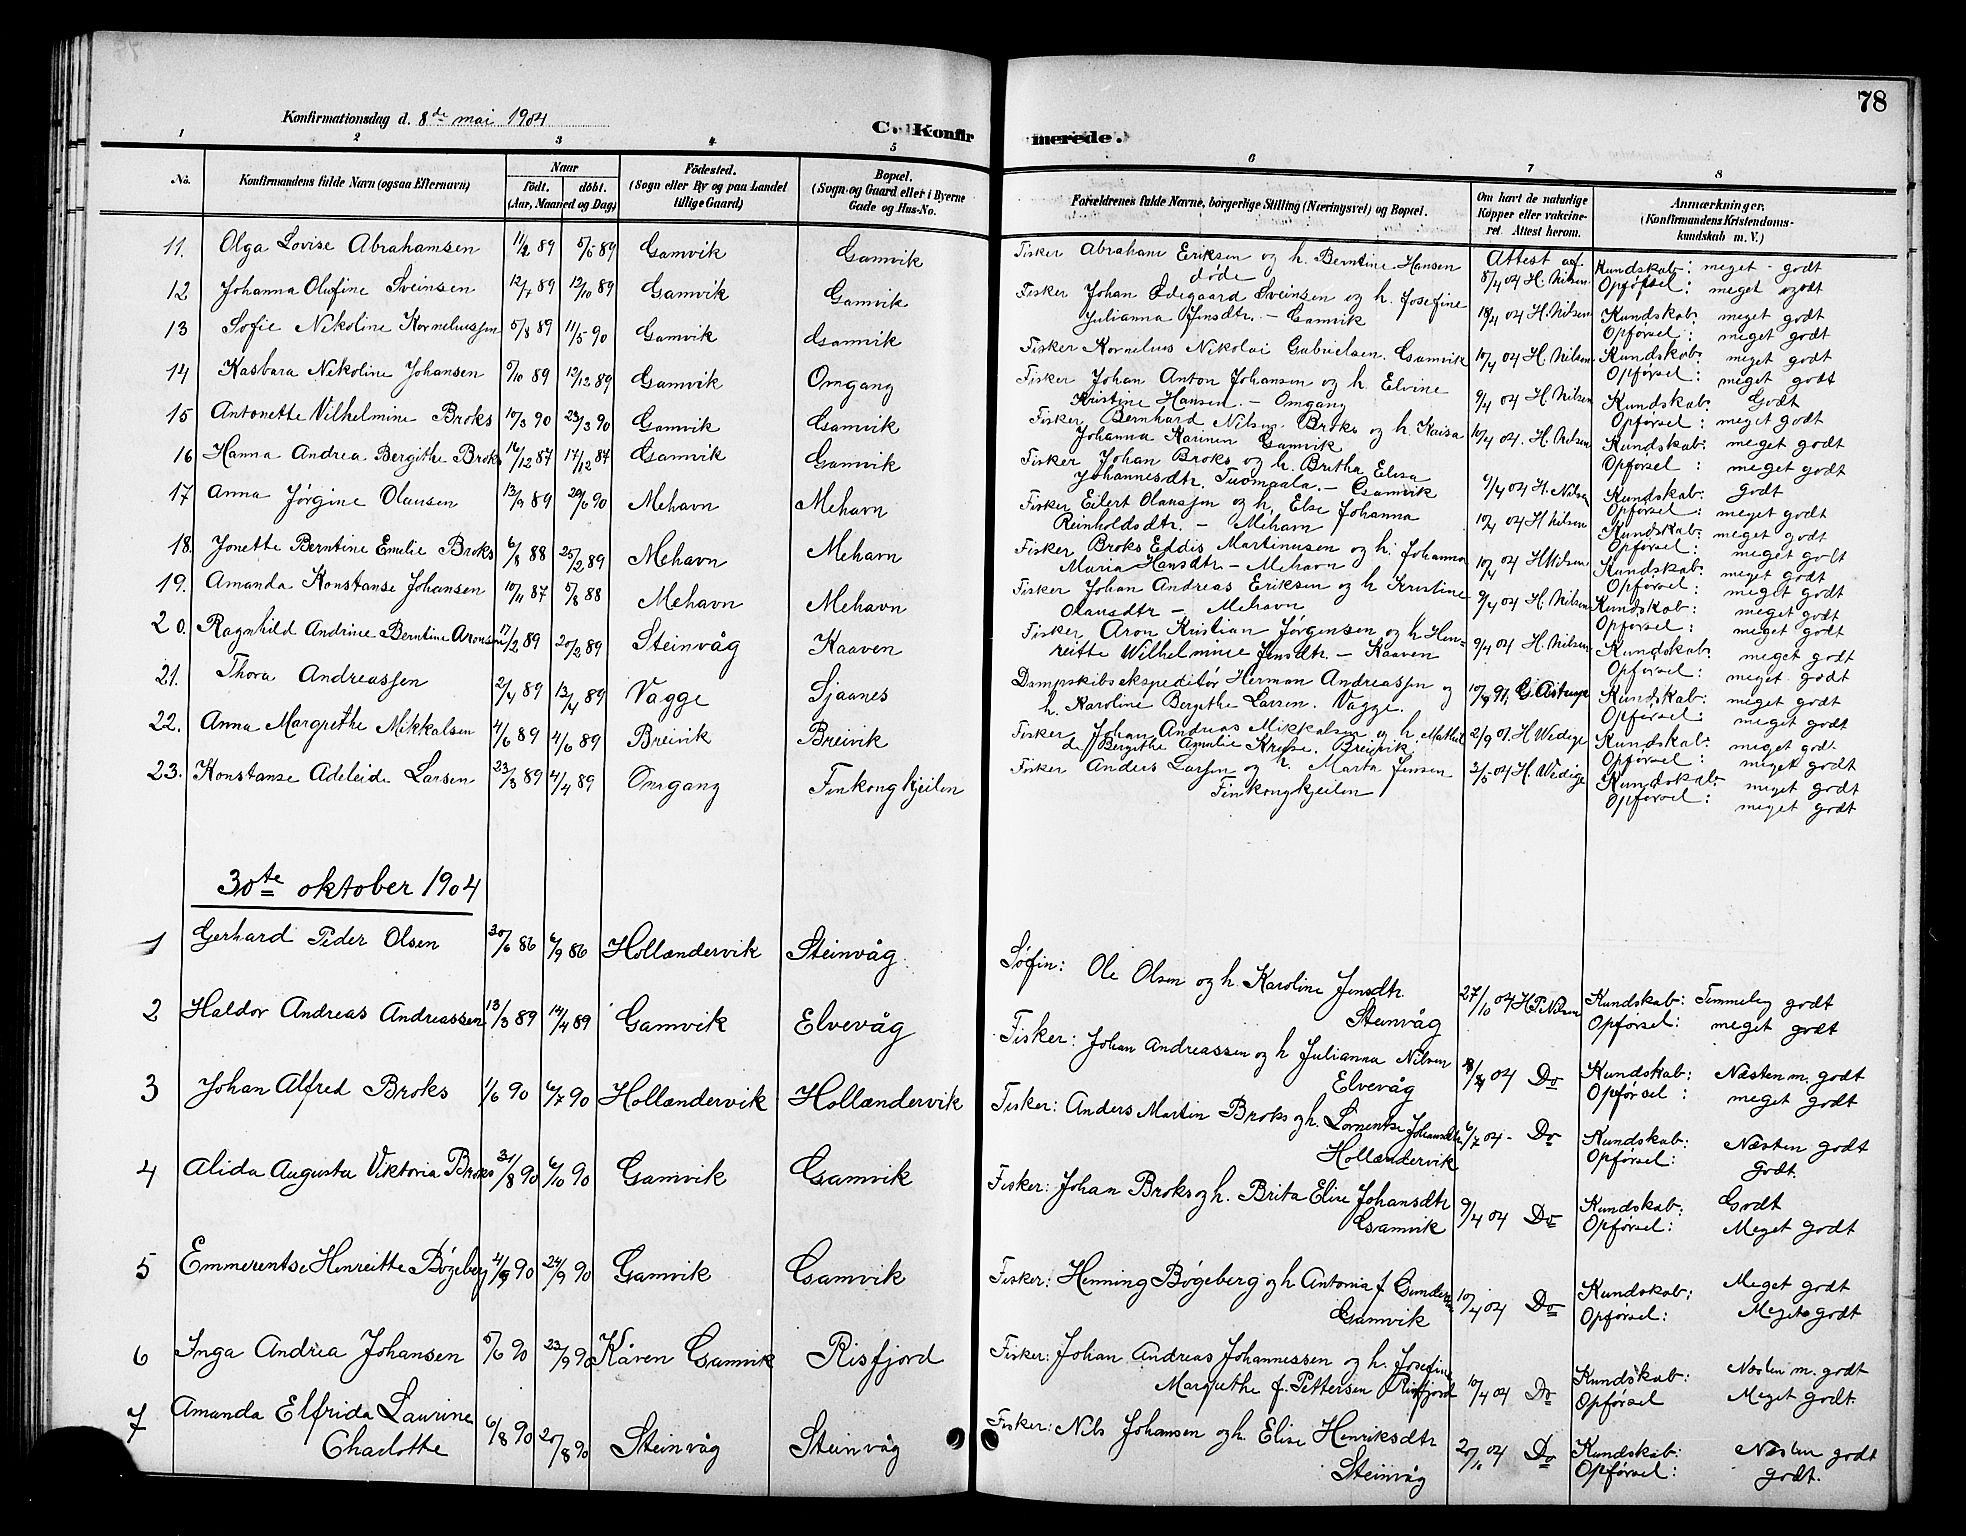 78
Konfirmationsdag d. 8de mai 1904
C. Konfirmerede.
1 2 3 4 5 6 7 8
No. Konfirmandens fulde Navn (ogsaa Efternavn) Naar født. døbt. (Aar, Maaned og Dag) Födested. (Sogn eller By og paa Landet tillige Gaard) Bopæl. (Sogn og Gaard eller i Byerne Gade og Hus-No. Forældrenes fulde Navne, borgerlige Stilling (Næringsvei) og Bopæl. Om havt de naturlige Køpper eller vakcineret. Attest herom. Anmærkninger. (Konfirmandens Kristendomskundskab m. V.)
11. Olga Lovise Abrahamsen 89 5/5 89 Gamvik Gamvik Fisker Abraham Eriksen og h. Berntine Hansen Attest af
døde 8/4 04 H. Nilsen Kundskab: meget godt
Opførsel: meget godt
12 Johanna Olufine Sveinsen 12/7 89 12/10 89 Gamvik Gamvik Fisker Johan Ødegaard Sveinsen og h. Josefine
Julianna Jensdtr. – Gamvik 04 H. Nilsen Kundskab: meget godt
Opførsel: meget godt
13 Sofie Nikoline Korneliussen 5/8 89 11/5 90 Gamvik Gamvik Fisker Kornelius Nikolai Gabrielsen. Gamvik 10/4 04 H. Nilsen Kundskab: meget godt
Opførsel: meget godt
14 Kasbara Nikoline Johansen 5/10 89 12/12 89 Gamvik Omgang Fisker Johan Anton Johansen og h Elvine
Kristine Hansen. – Omgang 9/4 04 H. Nilsen Kundskab: Godt
Opførsel: meget godt
15 Antonette Vilhelmine Broks 10/3 90 23/3 90 Gamvik Gamvik Fisker Bernhard Nilsen Broks og h. Kaisa
Johanna Karinen Gamvik 10/4 04. H. Nilsen Kundskab: meget godt
Opførsel: meget godt
16 Hanna Andrea Bergithe Broks 16/12 87 17/12 87 Gamvik Gamvik Fisker Johan Broks og h. Britha Elisa
Johannesdtr. Tuomaala. – Gamvik 9/4 04 H. Nilsen Kundskab: godt
Opførsel: meget godt
17 Anna Jørgine Olausen 13/9 89 29/6 90 Mehavn Mehavn Fisker Eilert Olaussen og h. Else Johanna
Reinholdsdtr. – Mehavn 10/4 04 H Nilsen Kundskab: meget godt
Opførsel: meget godt
18. Jonette Berntine Emilie Broks 6/8 88 25/2 89 Mehavn Mehavn Fisker Broks Eddis Martinusen og h. Johanna
Maria Hansdtr. – Mehavn 10/4 04 H Nilsen Kundskab: meget godt
Opførsel: meget godt
19. Amanda Konstanse Johansen 10/11 87 5/8 88 Mehavn Mehavn Fisker Johan Andreas Eriksen og h Kristine
Olausdtr – Mehavn 9/4 04 H. Nilsen Kundskab: meget godt
Opførsel: meget godt
20. Ragnhild Andrine Berntine Aronsen 17/2 89 20/2 89 Steinvåg Kaaven Fisker Aron Kristian Jørgensen og h. Hen-
reitte Wilhelmine Jensdtr. – Kaaven 9/4 04 H. Nilsen Kundskab: meget godt
Opførsel: meget godt
21. Thora Andreassen 2/4 89 13/4 89 Vagge Sjaanes Dampskibsekspeditør Herman Andreassen og
h. Karoline Bergithe Larsen. Vagge. Kundskab: meget godt
Opførsel: meget godt
22. Anna Margrethe Mikkalsen 4/6 89 4/6 89 Breivik Breivik Fisker Johan Andreas Mikkalsen og h. Mathil
de Bergithe Amalie Kruse. Breivik 2/9 01. H Wedige Kundskab: meget godt
Opførsel: meget godt
23. Konstanse Adeleide Larsen 23/3 89 4/4 89 Omgang Finkongkjeilen Fisker Anders Larsen og h. Marta Jensen
Finkongkjeilen 3/5 04 H. Wedige Kundskab: meget godt
Opførsel: meget godt
30te oktober 1904
1 Gerhard Peder Olsen 30/6 86 6/9 86 Hollændervik Steinvåg. Søfin: Ole Olsen og h. Karoline Jensdtr.
Steinvåg 27/10 04 H.P. Nilsen Kundskab: Temmelig godt
Opførsel: meget godt
2 Haldor Andreas Andreassen 13/3 89 14/4 89 Gamvik Elvevåg Fisker: Johan Andreassen og h Julianna Nilsen
Elvevåg 04 Do Kundskab: Næsten m. godt
Opførsel: meget godt
3 Johan Alfred Broks 1/6 90 6/7 90 Hollændervik Hollændervik Fisker: Anders Martin Broks og h. Lornentse Johansdtr
Hollændervik 6/7 04 - Do Kundskab: Næsten godt
Opførsel: Godt.
4 Alida Augusta Viktoria Broks 31/8 90 6/10 90 Gamvik Gamvik Fisker: Johan Broks og h. Brita Elise Johansdtr
Gamvik 9/4 04 Do Kundskab: Godt
Opførsel: Meget godt
5 Emmerentse Henreitte Bøgeberg 4/9 90 24/9 90 Gamvik Gamvik Fisker: Henning Bøgeberg og h Antonia f. Gundersen
Gamvik 10/4 04 Do Kundskab: Meget godt
Opførsel: Meget godt
6 Inga Andrea Johansen 5/6 90 23/9 90 Kåven Gamvik Risfjord Fisker: Johan Andreas Johannessen og h. Josefine
Margrethe f. Pettersen Risfjord 10/4 04 Do Kundskab: Næsten m. godt
Opførsel Meget godt.
7 Amanda Elfrida Laurine
Charlotte 6/8 90 20/8 90 Steinvåg Steinvåg Fisker: Nils Johansen og h. Elise Henriksdtr
Steinvåg 04 Do Kundskab: Næsten godt
Opførsel: godt.